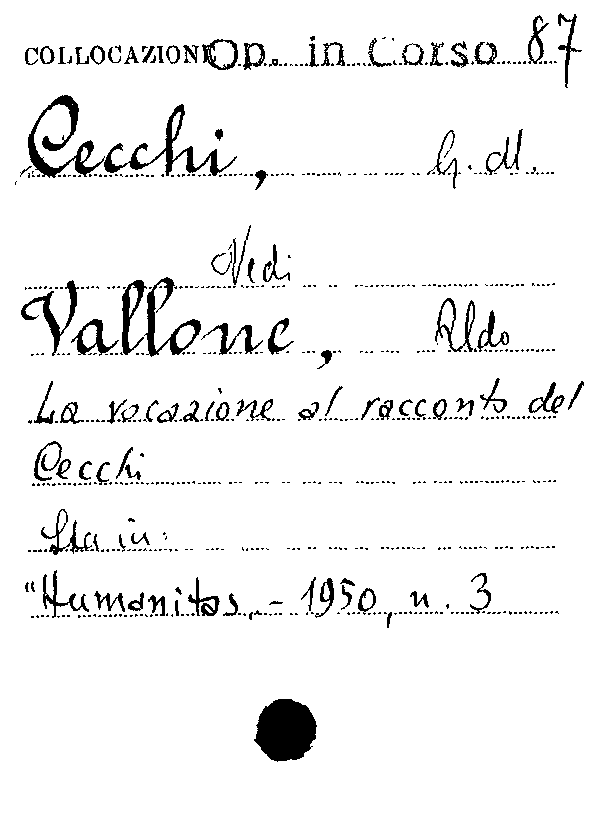 COLLOCAZIONE Op. in Corso 87
Cecchi, G. M.
Vedi
Vallone, Aldo
La vocazione al racconto del
Cecchi
Sta in:
"Humanitas„ - 1950, n. 3